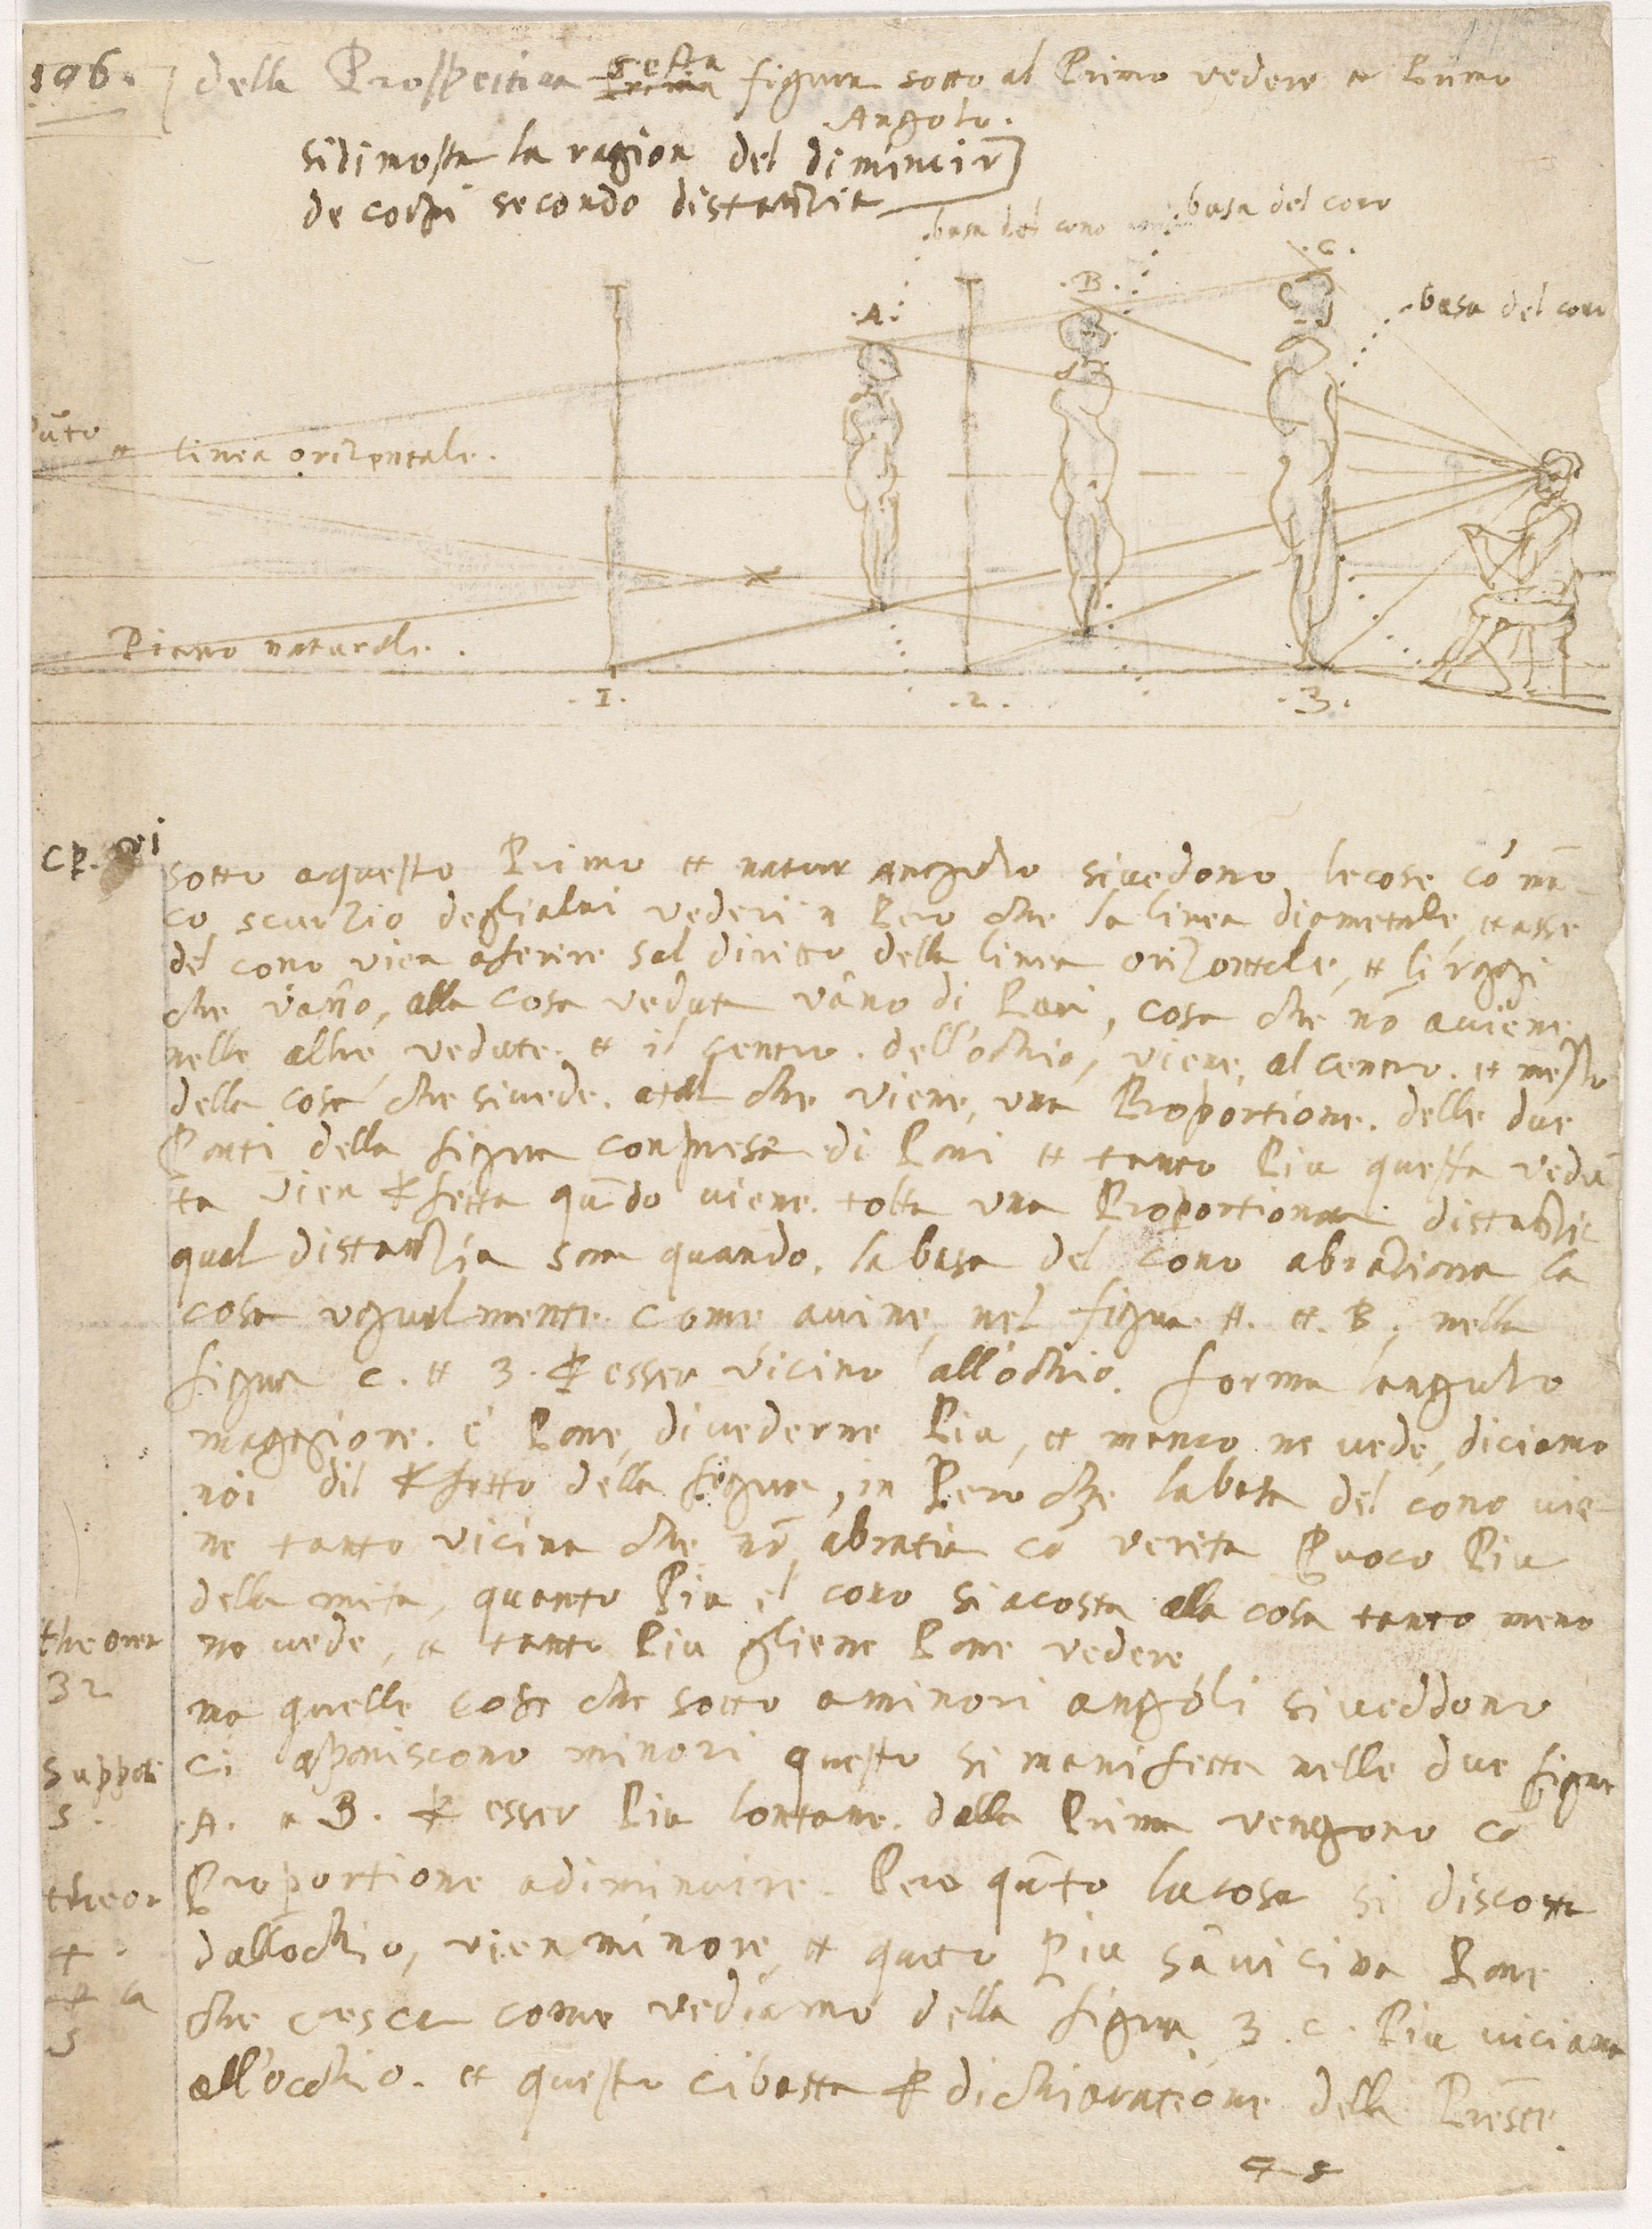 106.
della Prospectiua sesta figura sotto al Primo vedere et Primo
Angolo.
si dimosta la ragion del diminuir
de corpi secondo distantia
basa del cono
basa del cono
.C.
.B.
.A.
basa del cono
Pūto
et linea orizontale.
Piano naturale.
.I. .2. .3.
cp. vi
sotto aquesto Primo et natur angolo siuedono lecose cō mā
co scurzio deglialtri vederi in Pero che la linea diametrale, et asse
del cono vien aferire sul diritto della linea orizontale, et li raggi
che vāno, alla cosa veduta vāno di Pari, cosa che nō auiene
nelle altre vedute. et il centro. dell'ochio, viene, al centro. et mezzo
della cosa che siuede. atal che viene, vna Proportione. delle due
Parti della figura compresa di Pari et tanto Piu questa vedu
ta vien ꝑfetta quādo viene. tolta vna Proportionata distantia
qual distantia sara quando. la basa del cono abratiara la
cosa vgualmente. come auine, nel figura. A. et. B., nella
figura c. et 3. ꝑ esser vicino all'ochio. forma l'angulo
maggiore. e Pare, diuederne Piu, et manco ne uede, diciamo
noi dil ꝑfetto della figura, in Pero che labasa del cono uie
ne tanto vicina che nō abratia cō verita Puoco Piu
della mita, quanto Piu el cono si acosta alla cosa tanto meno
ne uede, et tanto Piu gliene Pare vedere
theorer
32
ma quelle cose che sotto aminori angoli siueddono
supposi
5.
ci apariscono minori questo si manifesta nelle due figure
.A. et B. ꝑ esser Piu lontane. dalla Prima vengono cō
theor
4.
Proportione adiminuire. Pero quāto la cosa si discosta
dallochio, vien minore, et quāto Piu s'auicina Pare
ꝑ la
5
che cresca come vediamo della figura. 3. c. Piu uiciana
all'occhio. et questo cibasta ꝑ dichiaratione della Presēte.